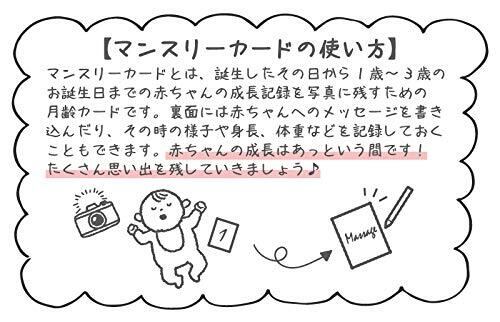 【マンスリーカードの使い方】
マンスリーカードとは、誕生したその日から1歳～3歳の
お誕生日までの赤ちゃんの成長記録を写真に残すための
月齢カードです。裏面には赤ちゃんへのメッセージを書き
込んだり、その時の様子や身長、体重などを記録しておく
こともできます。赤ちゃんの成長はあっという間です！
たくさん思い出を残していきましょう♪
1
Massage